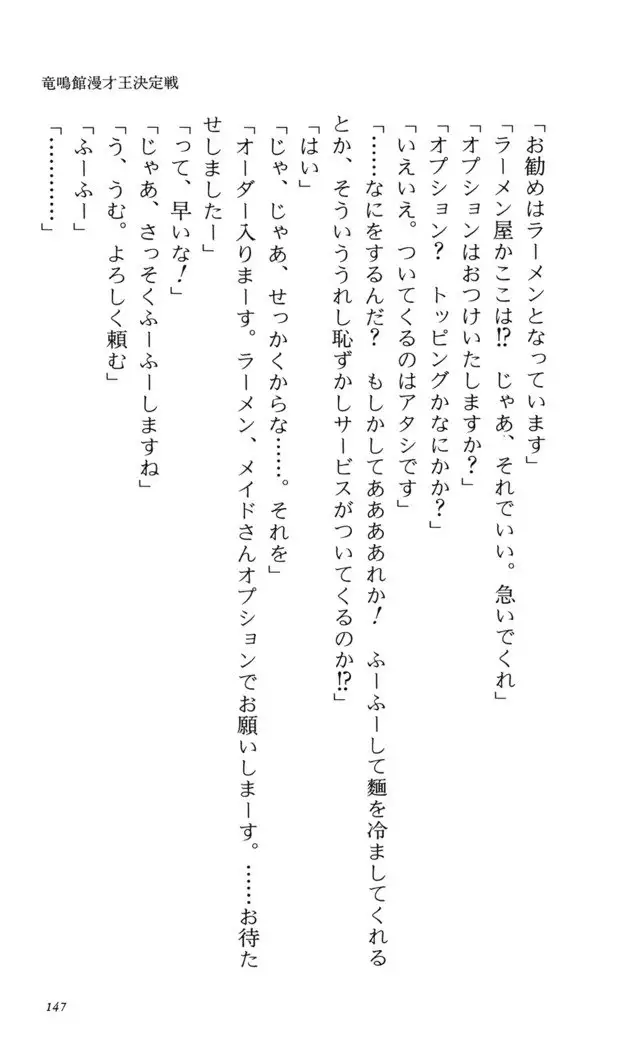 竜鳴館漫才王決定戦
「お勧めはラーメンとなっています」
「ラーメン屋かここは⁉　じゃあ、それでいい。急いでくれ」
「オプションはおつけいたしますか？」
「オプション？　トッピングかなにかか？」
「いえいえ。ついてくるのはアタシです」
「……なにをするんだ？　もしかしてああああれか！　ふーふーして麵を冷ましてくれる
とか、そういううれし恥ずかしサービスがついてくるのか⁉」
「はい」
「じゃ、じゃあ、せっかくからな……。それを」
「オーダー入りまーす。ラーメン、メイドさんオプションでお願いしまーす。……お待た
せしましたー」
「って、早いな！」
「じゃあ、さっそくふーふーしますね」
「う、うむ。よろしく頼む」
「ふーふー」
「…………」
147